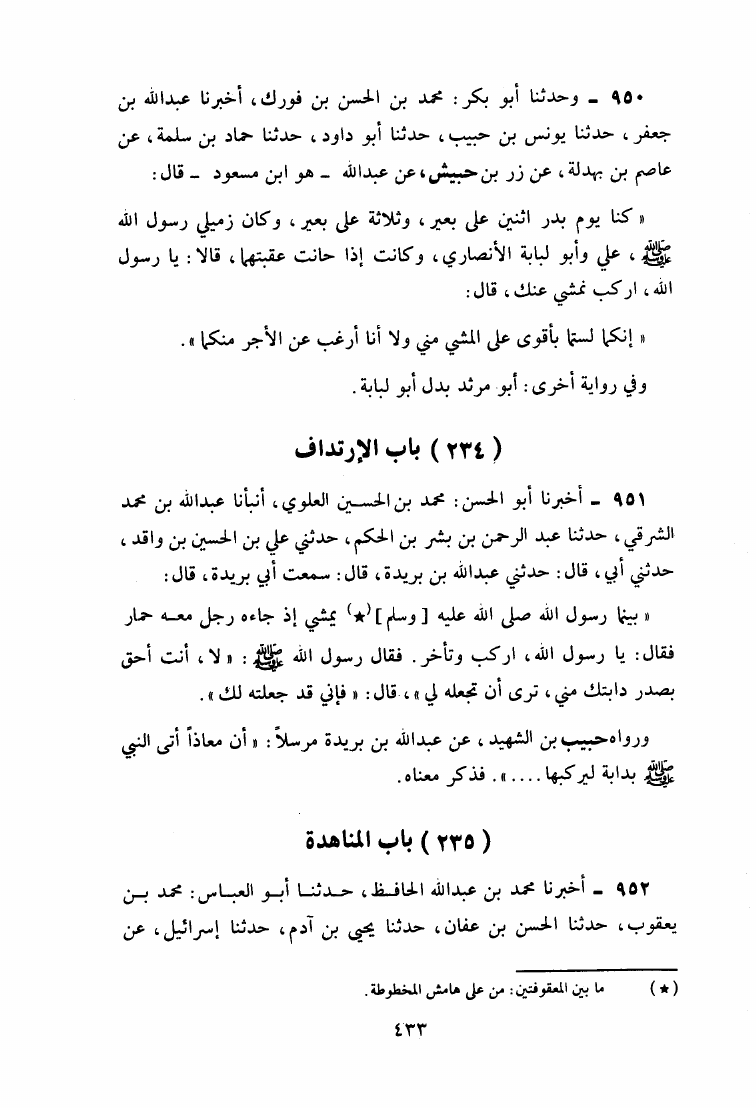 ٩٥٠ ـ وحدثنا أبو بكر: محمد بن الحسن بن فورك، أخبرنا عبدالله بن
جعفر، حدثنا يونس بن حبيب، حدثنا أبو داود، حدثنا حماد بن سلمة، عن
عاصم بن بهدلة، عن زر بن حبيش، عن عبدالله ـ هو ابن مسعود ـ قال:
« كنا يوم بدر اثنين على بعير، وثلاثة على بعير، وكان زميلي رسول الله
ﷺ، علي وأبو لبابة الأنصاري، وكانت إذا حانت عقبتهما، قالا: يا رسول
الله، اركب نمشي عنك، قال:
« إنكما لستما بأقوى على المشي مني ولا أنا أرغب عن الأجر منكما ».
وفي رواية أخرى: أبو مرثد بدل أبو لبابة.
( ٢٣٤ ) باب الإرتداف
٩٥١ ـ أخبرنا أبو الحسن: محمد بن الحسين العلوي، أنبأنا عبدالله بن محمد
الشرقي، حدثنا عبد الرحمن بن بشر بن الحكم، حدثني علي بن الحسين بن واقد،
حدثني أبي، قال: حدثني عبدالله بن بريدة، قال: سمعت أبي بريدة، قال:
« بينما رسول الله صلى الله عليه [ وسلم ](★) يمشي إذ جاءه رجل معه حمار
فقال: يا رسول الله، اركب وتأخر. فقال رسول الله ﷺ: « لا، أنت أحق
بصدر دابتك مني، ترى أن تجعله لي »، قال: « فإني قد جعلته لك ».
ورواه حبيب بن الشهيد، عن عبدالله بن بريدة مرسلاً: « أن معاذاً أتى النبي
ﷺ بدابة ليركبها.... ». فذكر معناه.
( ٢٣٥ ) باب المناهدة
٩٥٢ ـ أخبرنا محمد بن عبدالله الحافظ، حدثنا أبو العباس: محمد بن
يعقوب، حدثنا الحسن بن عفان، حدثنا يحيى بن آدم، حدثنا إسرائيل، عن
(★) ما بين المعقوفتين: من على هامش المخطوطة.
٤٣٣